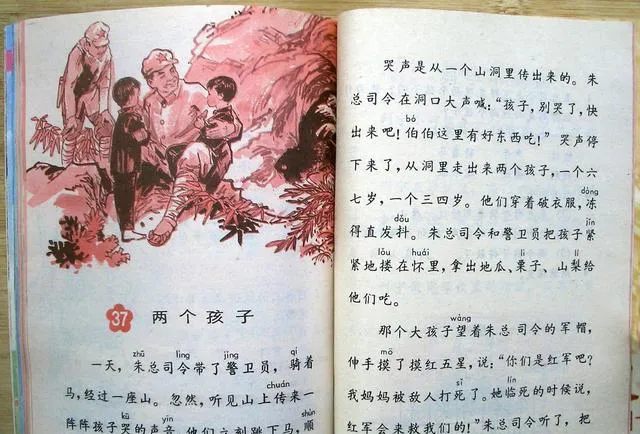 37 两个孩子
zhū lìng jǐng qí
一天，朱总司令带了警卫员，骑着
chuán
马，经过一座山。忽然，听见山上传来一
kū yīn shùn
阵阵孩子哭的声音。他们立刻跳下马，顺
哭声是从一个山洞里传出来的。朱
总司令在洞口大声喊：“孩子，别哭了，快
bó
出来吧！伯伯这里有好东西吃！”哭声停
下来了，从洞里走出来两个孩子，一个六
dòng
七岁，一个三四岁。他们穿着破衣服，冻
dǒu jǐn
得直发抖。朱总司令和警卫员把孩子紧
lǒu huái lì lí
紧地搂在怀里，拿出地瓜、栗子、山梨给
他们吃。
wàng
那个大孩子望着朱总司令的军帽，
mō
伸手摸了摸红五星，说：“你们是红军吧？
sǐ lín
我妈妈被敌人打死了。她临死的时候说，
红军会来救我们的！”朱总司令听了，把